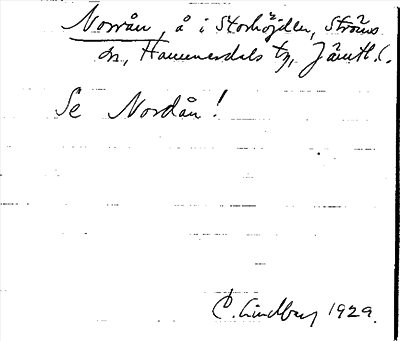 Norrån, å i Storhöjden, Ströms
sn, Hammerdals tg, Jämtl.
Se Nordån!
C. Lindberg 1929.